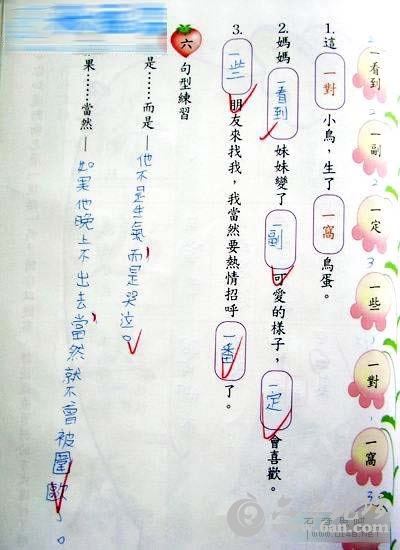 一看到
一副
一定
一些
一對
一窩
1. 這 一對 小鳥，生了 一窩 鳥蛋。
2. 媽媽 一看到 妹妹變了 副 可愛的樣子，一定 會喜歡。
3. 一些 朋友來找我，我當然要熱情招呼 一番 了。
六 句型練習
是……而是—他不是生氣，而是哭泣。
果……當然—如果他晚上不出去，當然就不會被圍了。